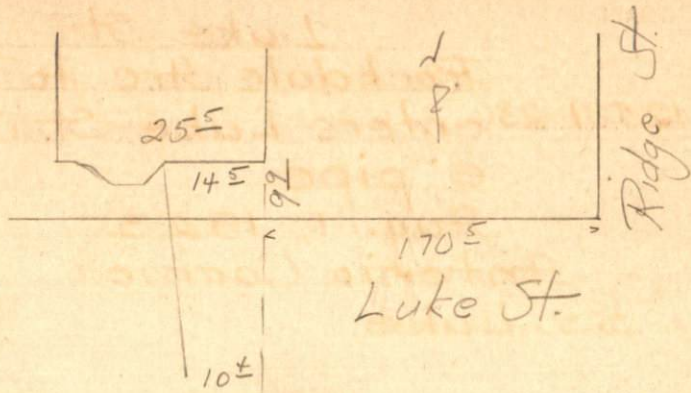 25⁵
14⁵
99
170⁵
Luke St.
Ridge St.
10±